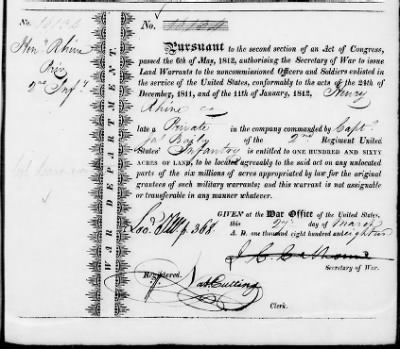 No.
Hen.y Rhine
Priv.
2.d Inf.y
WAR DEPARTMENT.
No.
Pursuant to the second section of an Act of Congress,
passed the 6th of May, 1812, authorising the Secretary of War to issue
Land Warrants to the noncommissioned Officers and Soldiers enlisted
in the service of the United States, conformably to the acts of the 24th of
December, 1811, and of the 11th of January, 1812, Henry
Rhine
late a Private in the company commanded by Capt.
of the 2nd Regiment United
States' Infantry is entitled to ONE HUNDRED AND SIXTY
ACRES OF LAND, to be located agreeably to the said act on any unlocated
parts of the six millions of acres appropriated by law for the original
grantees of such military warrants; and this warrant is not assignable
or transferable in any manner whatever.
GIVEN at the War Office of the United States,
this day of March
A. D. one thousand eight hundred and eighteen
p. 368.
J. C. Calhoun
Secretary of War.
Registered.
Nat. Cutting
Clerk.